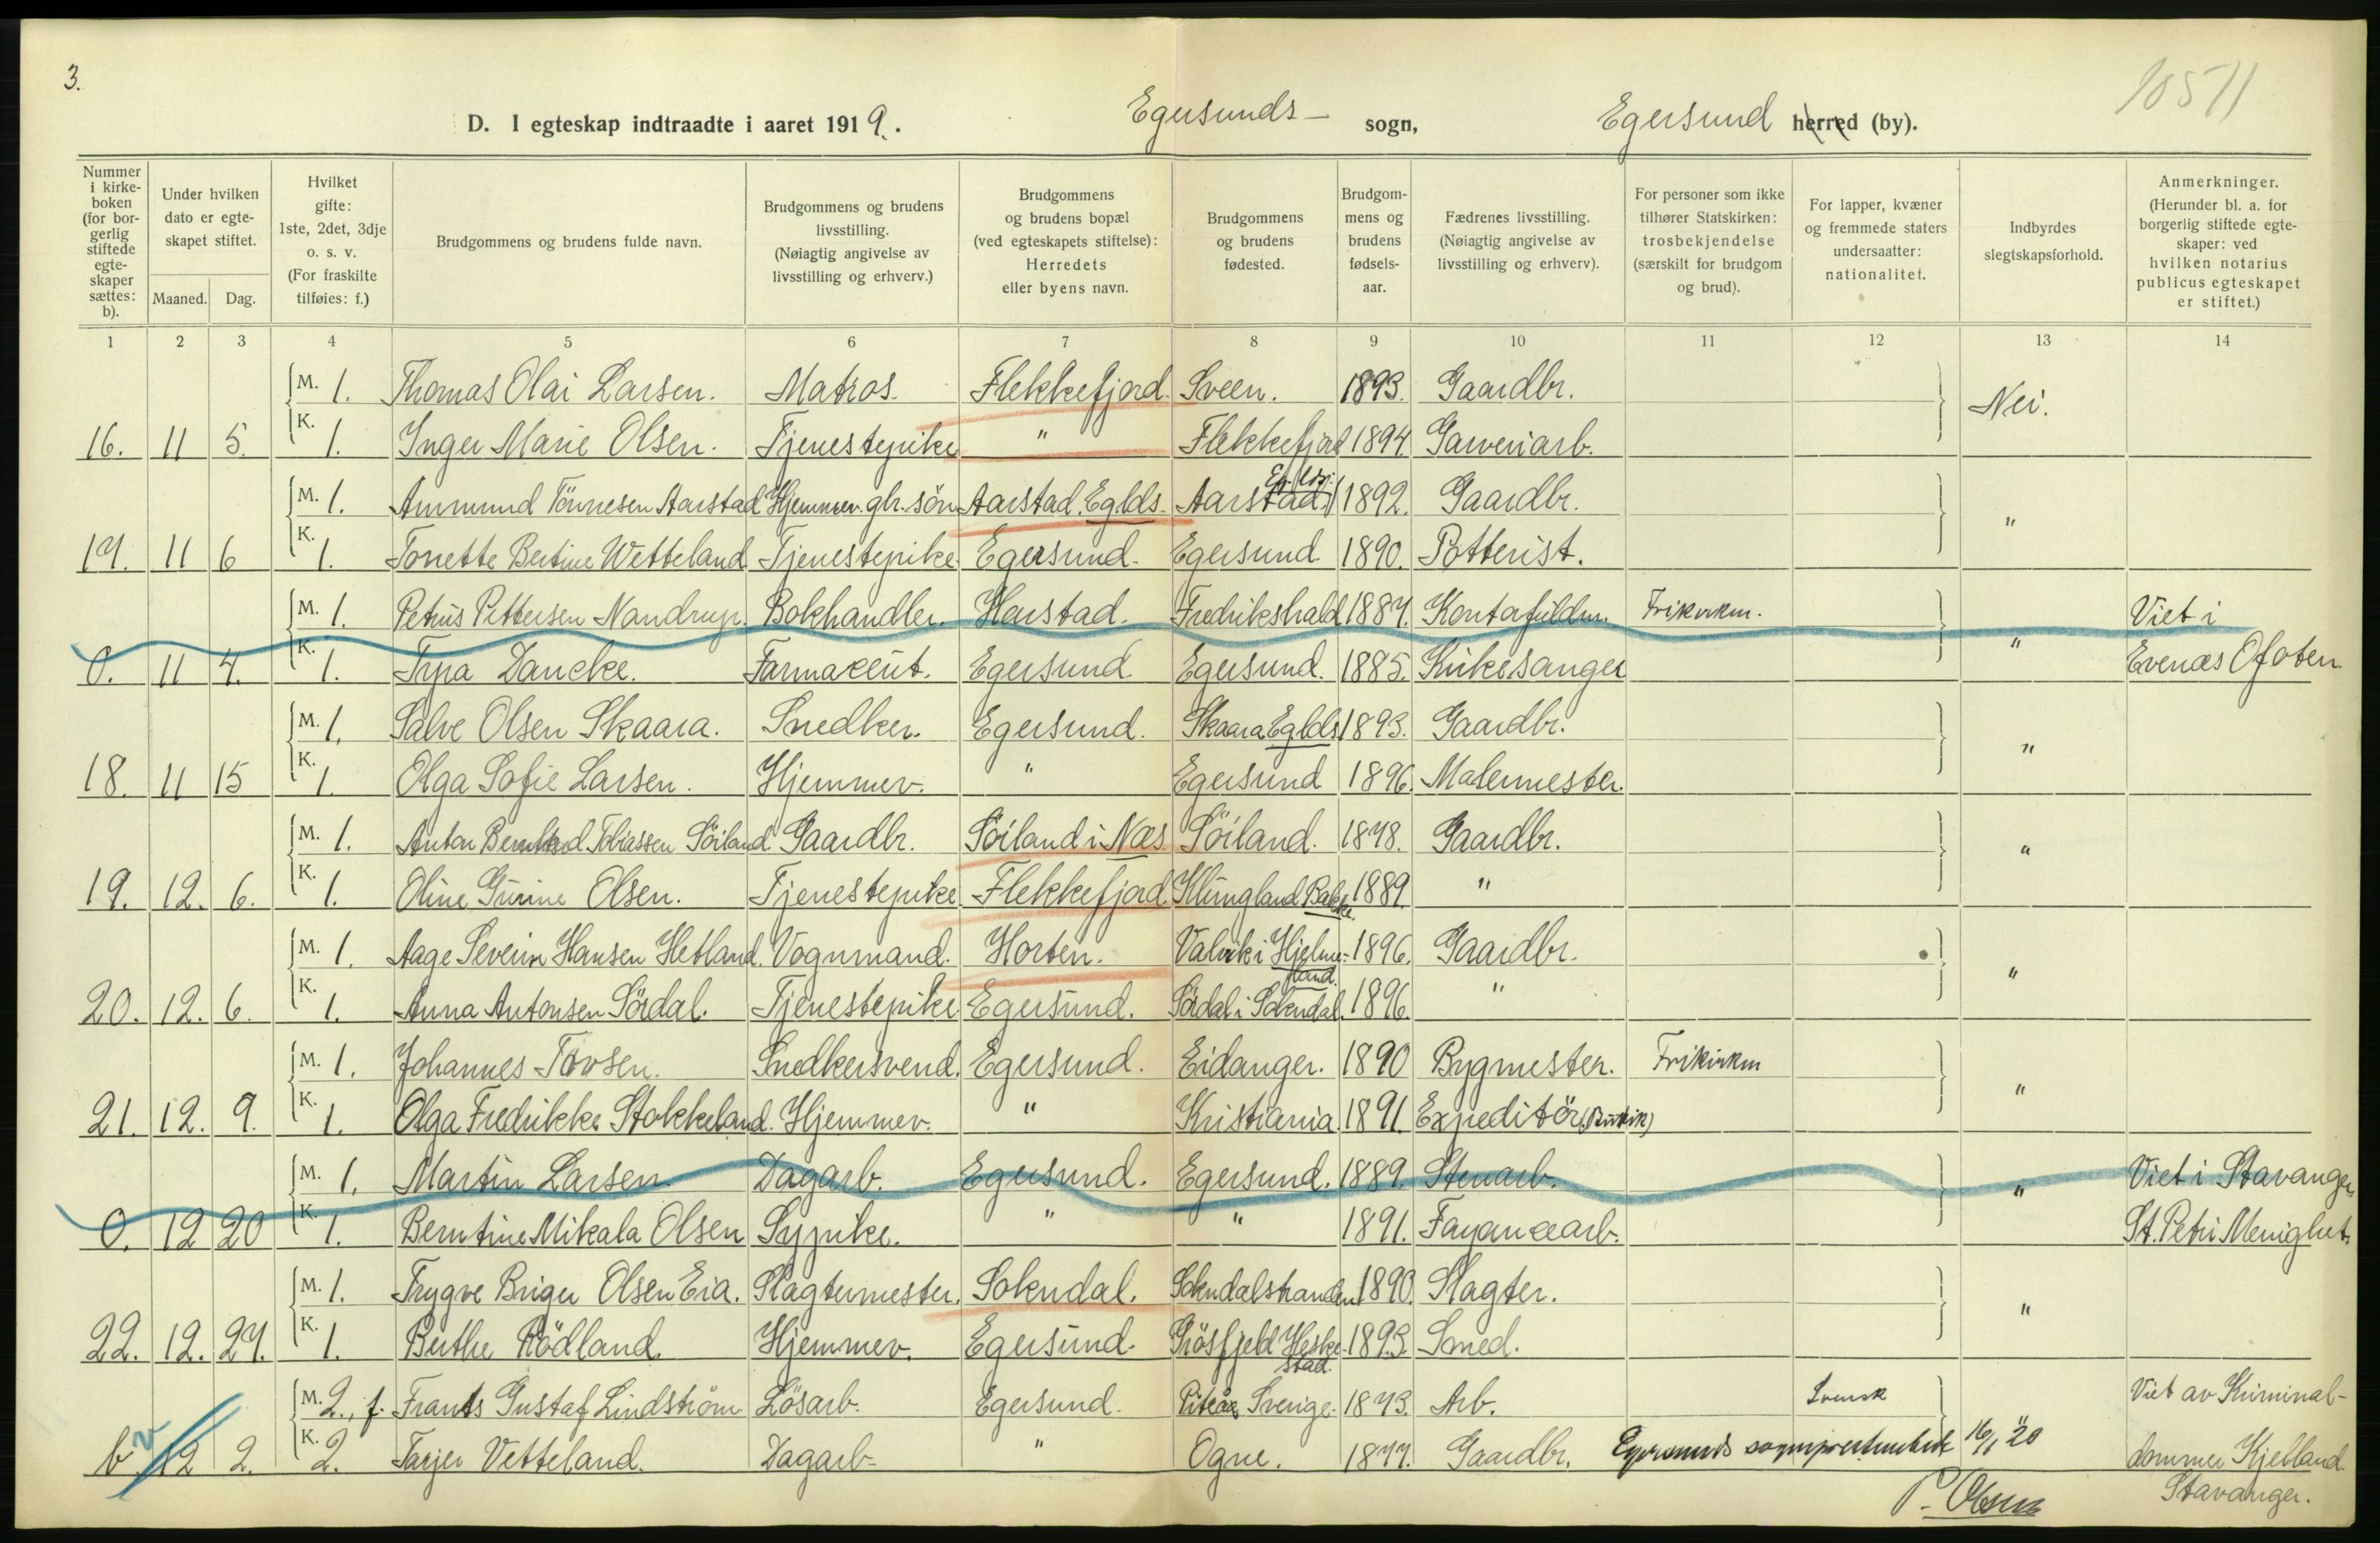 3.
10511
D. I egteskap indtraadte i aaret 1919. Egersunds sogn, Egersund herred (by).
Nummer i kirke-boken (for bor-gerlig stiftede egte-skaper sættes: b).
Under hvilken dato er egte-skapet stiftet.
Maaned. Dag.
Hvilket gifte: 1ste, 2det, 3dje o. s. v. (For fraskilte tilføies: f.)
Brudgommens og brudens fulde navn.
Brudgommens og brudens livsstilling. (Nøiagtig angivelse av livsstilling og erhverv.)
Brudgommens og brudens bopæl (ved egteskapets stiftelse): Herredets eller byens navn.
Brudgommens og brudens fødested.
Brudgom-mens og brudens fødsels-aar.
Fædrenes livsstilling. (Nøiagtig angivelse av livsstilling og erhverv).
For personer som ikke tilhører Statskirken: trosbekjendelse (særskilt for brudgom og brud).
For lapper, kvæner og fremmede staters undersaatter: nationalitet.
Indbyrdes slegtskapsforhold.
Anmerkninger. (Herunder bl. a. for borgerlig stiftede egte-skaper: ved hvilken notarius publicus egteskapet er stiftet.)
1 2 3 4 5 6 7 8 9 10 11 12 13 14
M. 1. Thomas Olai Larsen. Matros. Flekkefjord. Sveen. 1893. Gaardbr. Nei.
16. 11 5. K. 1. Inger Marie Olsen. Tjenestepike " Flekkefjord 1894 Garveriarb.
M. 1. Ammund Tönnesen Aarstad Hjemmev. gbr. sön Aarstad Eglds. Aarstad 1892. Gaardbr. "
17. 11 6 K. 1. Tonette Bertine Wetteland Tjenestepike. Egersund. Egersund 1890. Potterist.
M. 1. Petrus Pettersen Nandrup. Bokhandler. Harstad. Fredrikshald 1887. Kontorfuldm. Frikirkm. " Viet i
0. 11 4. K. 1. Tyra Dancke. Farmaceut. Egersund Egersund. 1885. Kirkesanger Evenæs Ofoten
M. 1. Salve Olsen Skaara. Snedker. Egersund. Skaara Eglds 1893. Gaardbr. "
18. 11 15 K. 1. Olga Sofie Larsen. Hjemmev. " Egersund 1896. Malermester.
M. 1. Anton Bernhard Tobiassen Söiland Gaardbr. Söiland i Næs Söiland. 1878. Gaardbr. "
19. 12. 6. K. 1. Oline Gurine Olsen. Tjenestepike Flekkefjord Klungland Bakke. 1889. "
M. 1. Aage Severin Hansen Hetland. Vognmand. Horten. Valvik i Hjelme-land. 1896. Gaardbr. "
20. 12. 6. K. 1. Anna Antonsen Sördal. Tjenestepike Egersund. Sördal i Sokndal. 1896. "
M. 1. Johannes Tovsen. Snedkersvend. Egersund. Eidanger. 1890 Bygmester. Frikirkm "
21. 12. 9. K. 1. Olga Fredrikke Stokkeland. Hjemmev. " Kristiania. 1891. Expeditör (Butik)
M. 1. Martin Larsen. Dagarb. Egersund. Egersund. 1889. Stenarb. " Viet i Stavanger,
0. 12 20 K. 1. Berntine Mikala Olsen Sypike. " " 1891. Fayancearb. St. Petri Menighet.
M. 1. Trygve Briger Olsen Eia. Slagtermester. Sokndal. Sokndalstranden 1890. Slagter. "
22. 12. 27. K. 1. Berthe Rödland. Hjemmev. Egersund. Grösfjeld Heske-stad. 1893. Smed.
M. 2., f. Frants Gustaf Lindström Lösarb. Egersund. Piteå Sverige. 1873. Arb. Svensk Viet av Kriminal-
b 12 2. K. 2. Tarjer Vetteland. Dagarb. " Ogne. 1877. Gaardbr. Egersunds sogneprestembede 16/1 20 dommer Kjelland
P. Olsen Stavanger.